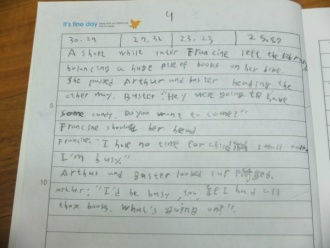 4
It's fine day
30-29 27, 32 23-23 25,52
A short while later Francine left the
balancing a huge pile of books on her
She passed Arthur and Buster heading the
other way. Buster: "Hey were going to have
some candy. Do you want to come?"
Francine her head
Francine: "I have no time for small
I'm busy."
Arthur and Buster looked
Arther: "I'd be busy, too, if I had all
those books. What's going on?"
5
10